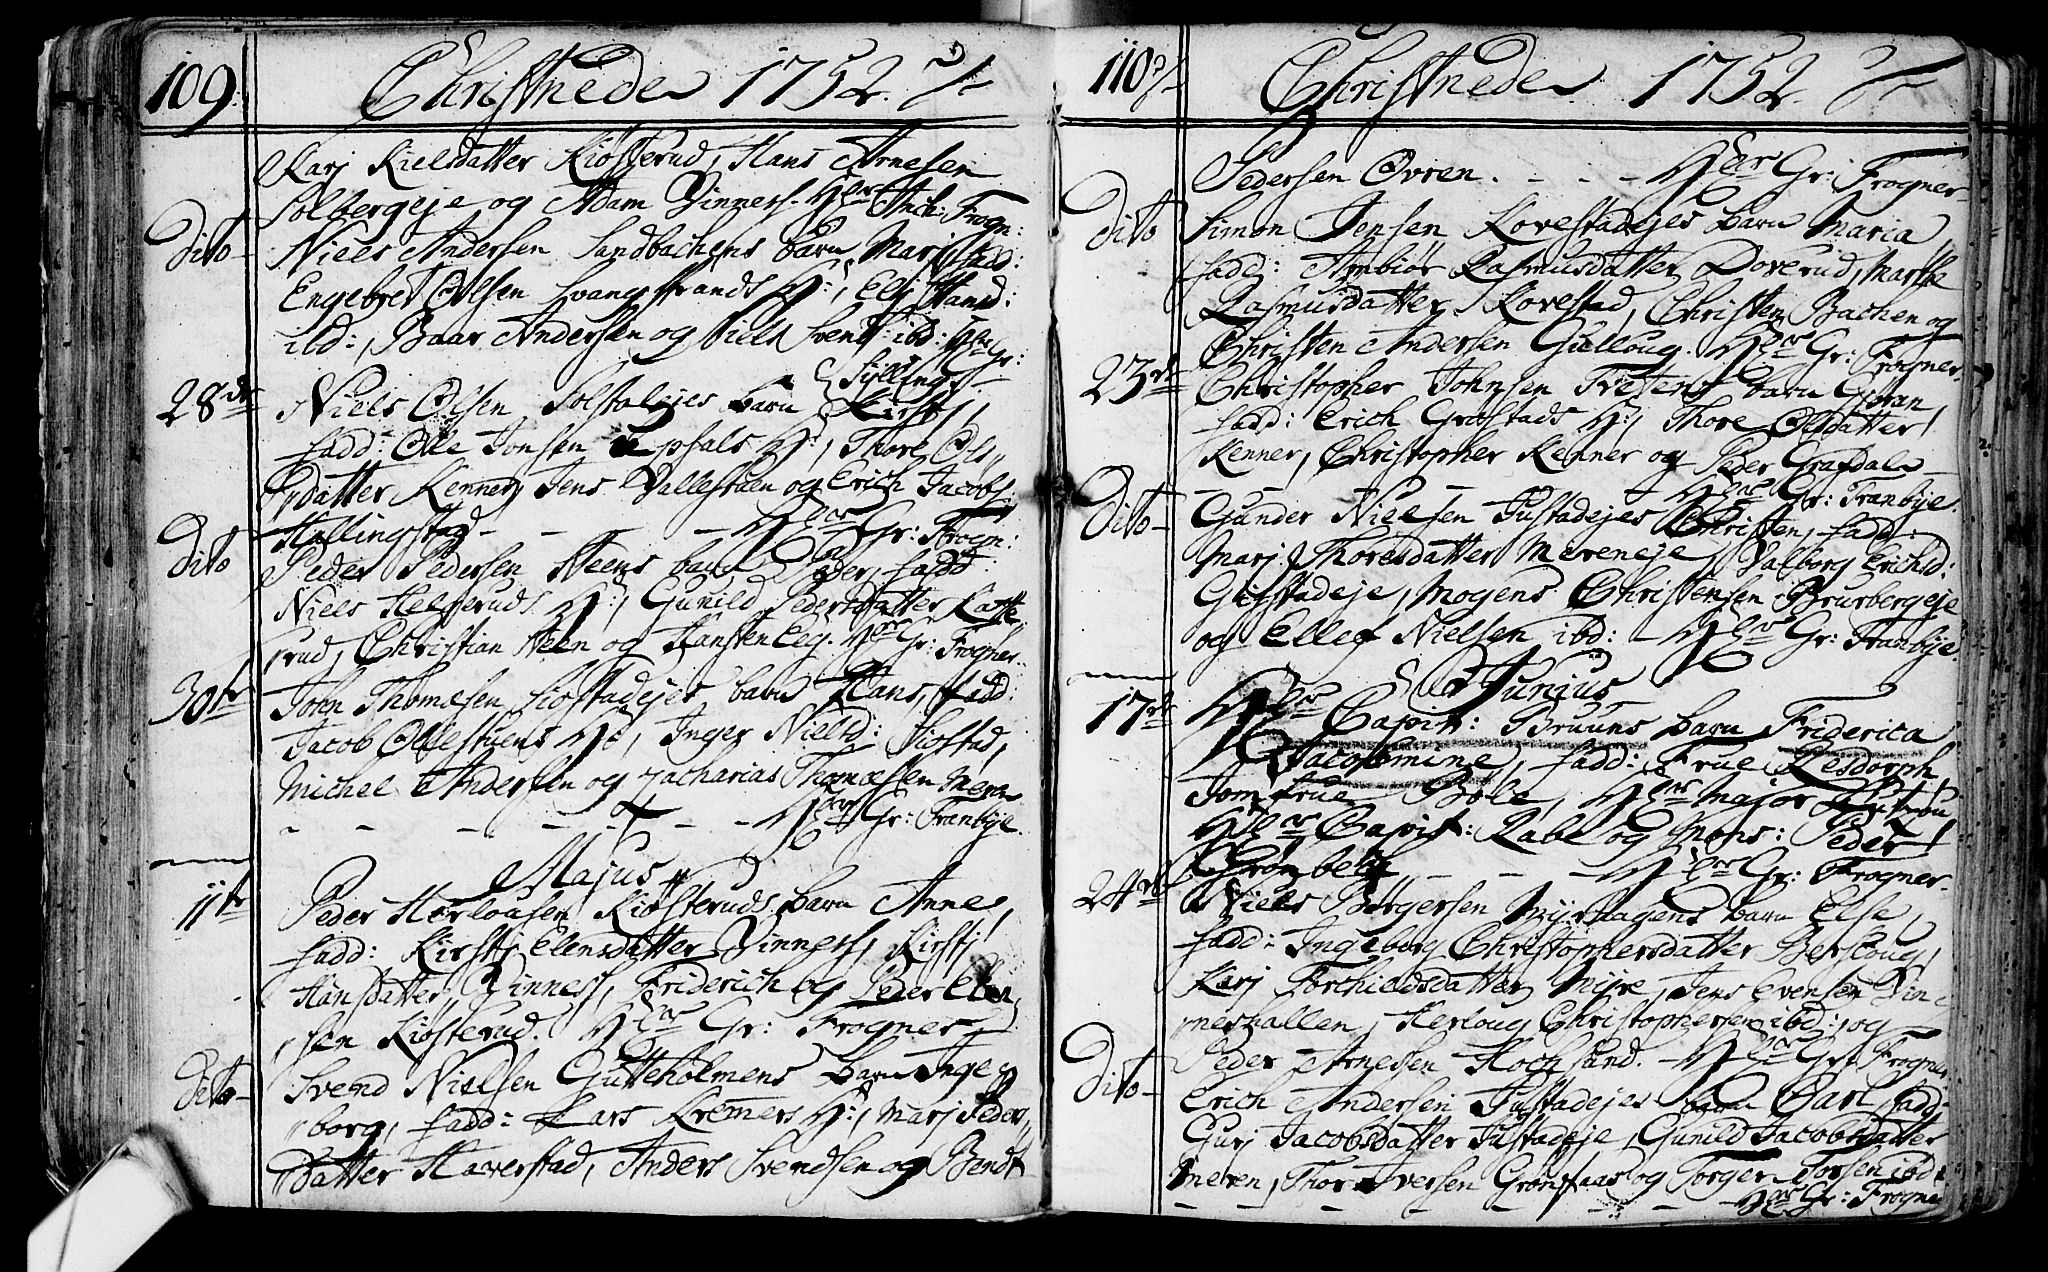 109. Christnede 1752.
Karj Kielsdatter Kiøsterud, Hans Arnesen
Solbergeje og Adam Vinness. Hr Anh: Frogn:
dito Niels Andersen Sandbachens barn Marj, fadd:
Engebret Olsen Svangstrands H:, Elj Hansd:
ibd:, Baar Andersen og Niels Svends: ibd: Hr Gr:
Sylling
28de Niels Olsen Solstadejes barn Kirstj,
fadd: Ole Jonsen opsals H:, Thore Ols-
datter Kenner, Jens Vallestuen og Erich Jacobs.
Hallingstad - - - Hr Gr: Frogn:
dito Peder Pedersen Steens barn Peder, fadd:
Niels Helgeruds H:, Gunild Pedersdatter Katte
rud, Christian Steen og Hansten Eeg. Hr Gr: Frogner.
30te John Thomesen Siostadejes barn Hans, fadd:
Jacob Ollestuens H:, Inger Nielsd: Siostad,
Michel Andersen og Zacharias Thomessen Meren
- - - - - - - Hr Gr: Tranbye.
Majus
11te Peder Herlousen Kiøsteruds barn Anne,
fadd: Kirstj Elensdatter Vinness, Kirstj
Hansdatter Vinness, Friderich og Peder Elen
sen Kiøsterud. Hr Gr: Frogner
dito Svend Nielsen Gutteholmens barn Inge
borg, fadd: Lars Kremers H:, Marj Peders
datter Haverstad, Anders Svendsen og Bendt
110 Christnede 1752.
Pedersen Øvren. - - - Hr Gr: Frogner
dito Simon Jensen Kovestadejes barn Maria
fadd: Ambiør Rasmusdatter Doverud, Marthe
Rasmusdatter Kovestad, Christen Bachen og
Christen Andersen Gulloug. Hr Gr: Frogner.
23de Christopher Johnsen Tvetens barn Gioran,
fadd: Erich Grøstads H:, Thore Olsdatter
Kenner, Christopher Kenner og Peder Grasdal
- - - - Hr Gr: Tranbye.
dito Gunder Nielsen Justadejes Christen, fadd:
Marj Thoresdatter Mereneje, Valborg Erichsd:
Gifstadeje, Mogens Christensen Brurbergeje
og Ellef Nielsen ibd: - Hr Gr: Tranbye.
Junius
17de Hr Capit: Bruuns barn Friderica
Jacobmine, fadd: Frue Lesdorph,
Jomfrue Bole, Hr Major
Hr Capit: Rabe og Mons: Peder
Grønbeck - - - Hr Gr: Frogner.
24de Niels Børgersen Myrhagens barn Else,
fadd: Ingeborg Christophersdatter Berskoug,
Karj Torchieldsdatter Myre, Jens Evensen Vin
neshallen, Herloug Christophersen ibd: og
Peder Arnesen Kochsand. - Hr Gr: Frogner
dito Erich Andersen Justadejes barn Carl, fadd:
Gurj Jacobsdatter Justadeje, Gunild Jacobsdatter
Meren, Thor Iversen Grønsaas og Torger Torsen ibd:
- - - - Hr Gr: Frogne